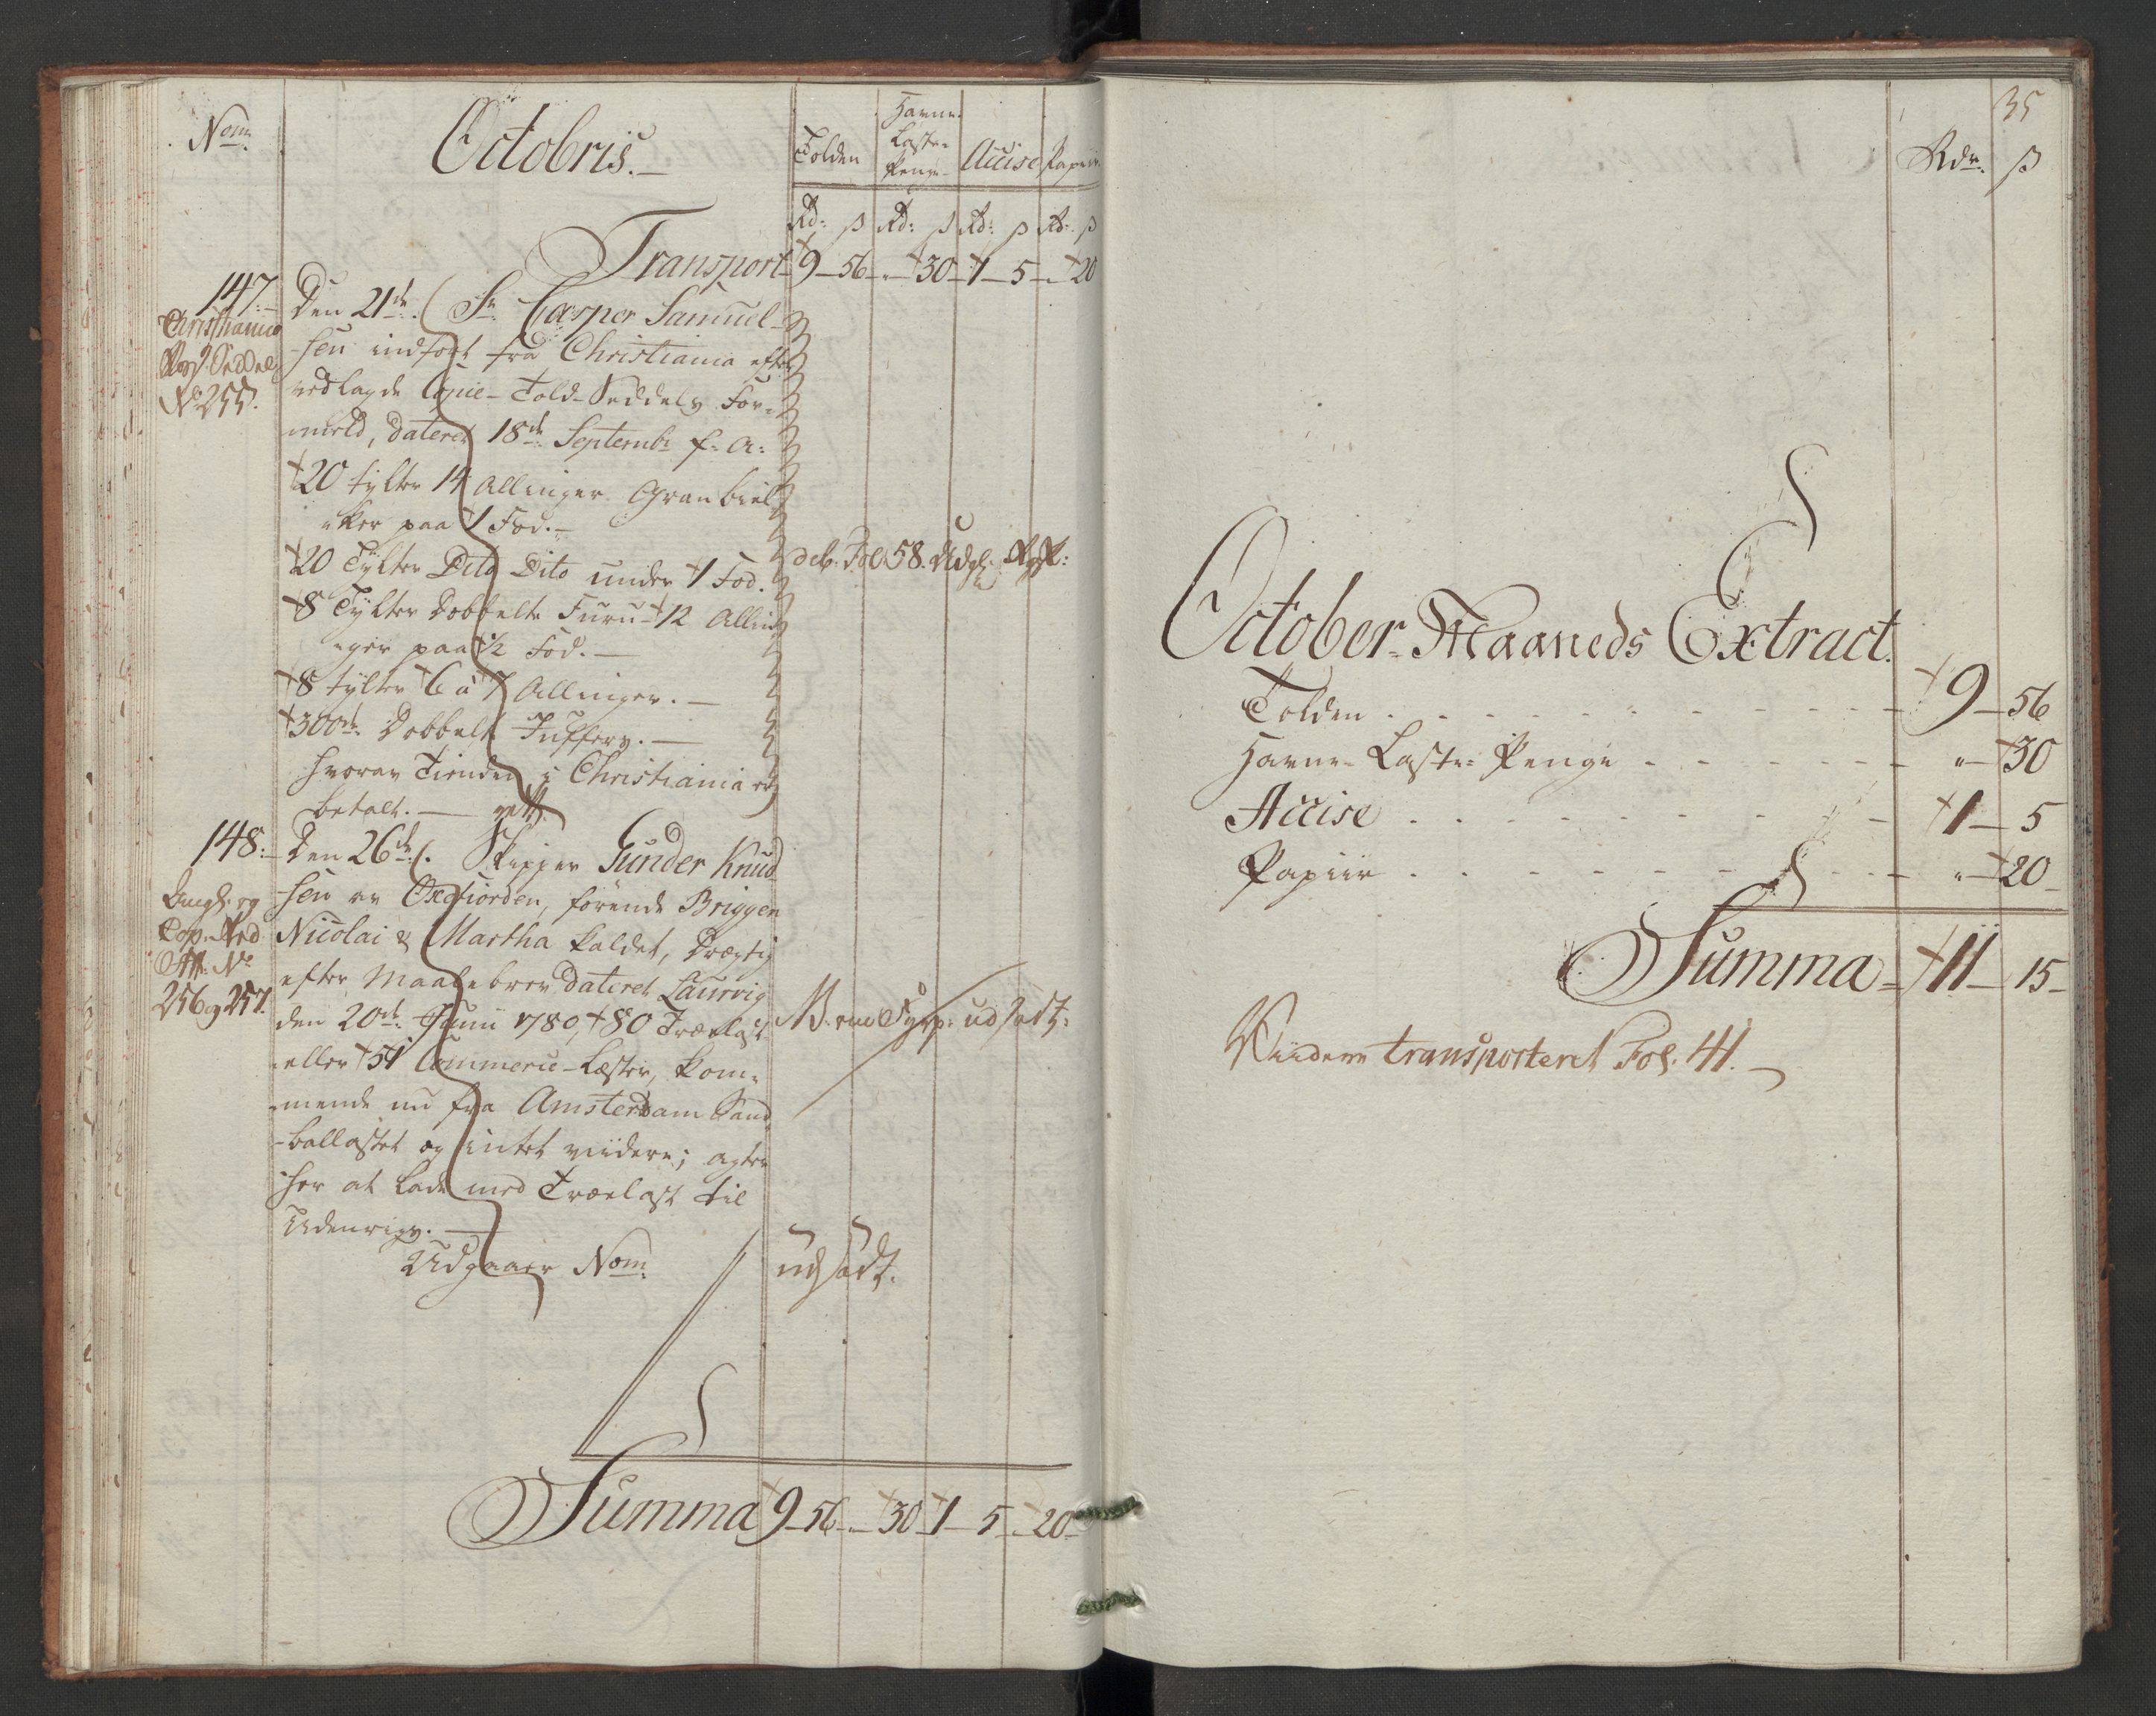 Nom:
Octobris.
Tolden
Havne-
Laste-
Penge
Accise
Papiir
Rd: ß Rd: ß Rd: ß Rd: ß
Transport 9 - 56 - " - 30 - 1 - 5 - " - 20
147.
Christianiæ
Seddel
No 255.
Den 21de: Sr Casper Samuel-
sen indført fra Christiania efter
vedlagde Copie-Told-Seddels For-
meld, dateret 18de Septembr f: a:
20 tylter 14 Allinger Gran biel-
ker paa 1 Fod.
20 Tylter Dito Dito under 1 Fod.
8 Tylter Dobbelte Furu 12 Allin-
ger paa 1/2 Fod.
8 tylter 6 à 7 Allinger.
300de Dobbelt Juffers.
hvorav Tienden i Christiania er
betalt.
deb: Fol 58. Udg:
148.
Angb. og
Top. Sed
Att: No
256 og 257.
Den 26de: Skipper Gunder Knud-
sen av Oxefiorden, førende Briggen
Nicolai & Martha kaldet, drægtig
efter Maalebrev dateret Laurvig
den 20de Junii 1780, 80 Trælast
eller 51 Commerce-Læster, kom-
mende nu fra Amsterdam Sand-
ballastet og intet viidere; agter
her at lade med Trælast til
Udenrigs.
udsadt:
Udgaaer Nom:
udsadt.
Summa 9 - 56 - " - 30 - 1 - 5 - " - 20
35
Rdr. ß
October-Maaneds Extract.
Tolden 9 - 56
Havne-Laste-Penge " - 30
Accise 1 - 5
Papiir " - 20
Summa 11 - 15
Viidere transporteret Fol. 41.